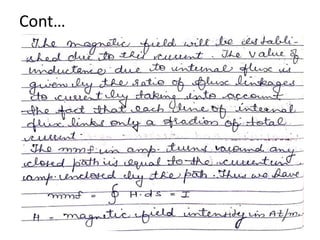 Cont...
The magnetic field will be establi-
shed due to this current. The value of
inductance due to internal flux is
given by the ratio of flux linkages
to current by taking into account
the fact that each line of internal
flux links only a fraction of total
current.
The mmf in amp. turns around any
closed path is equal to the current in
amp. enclosed by the path. Thus we have
mmf = ∮ H.ds = I
H = magnetic field intensity in At/m